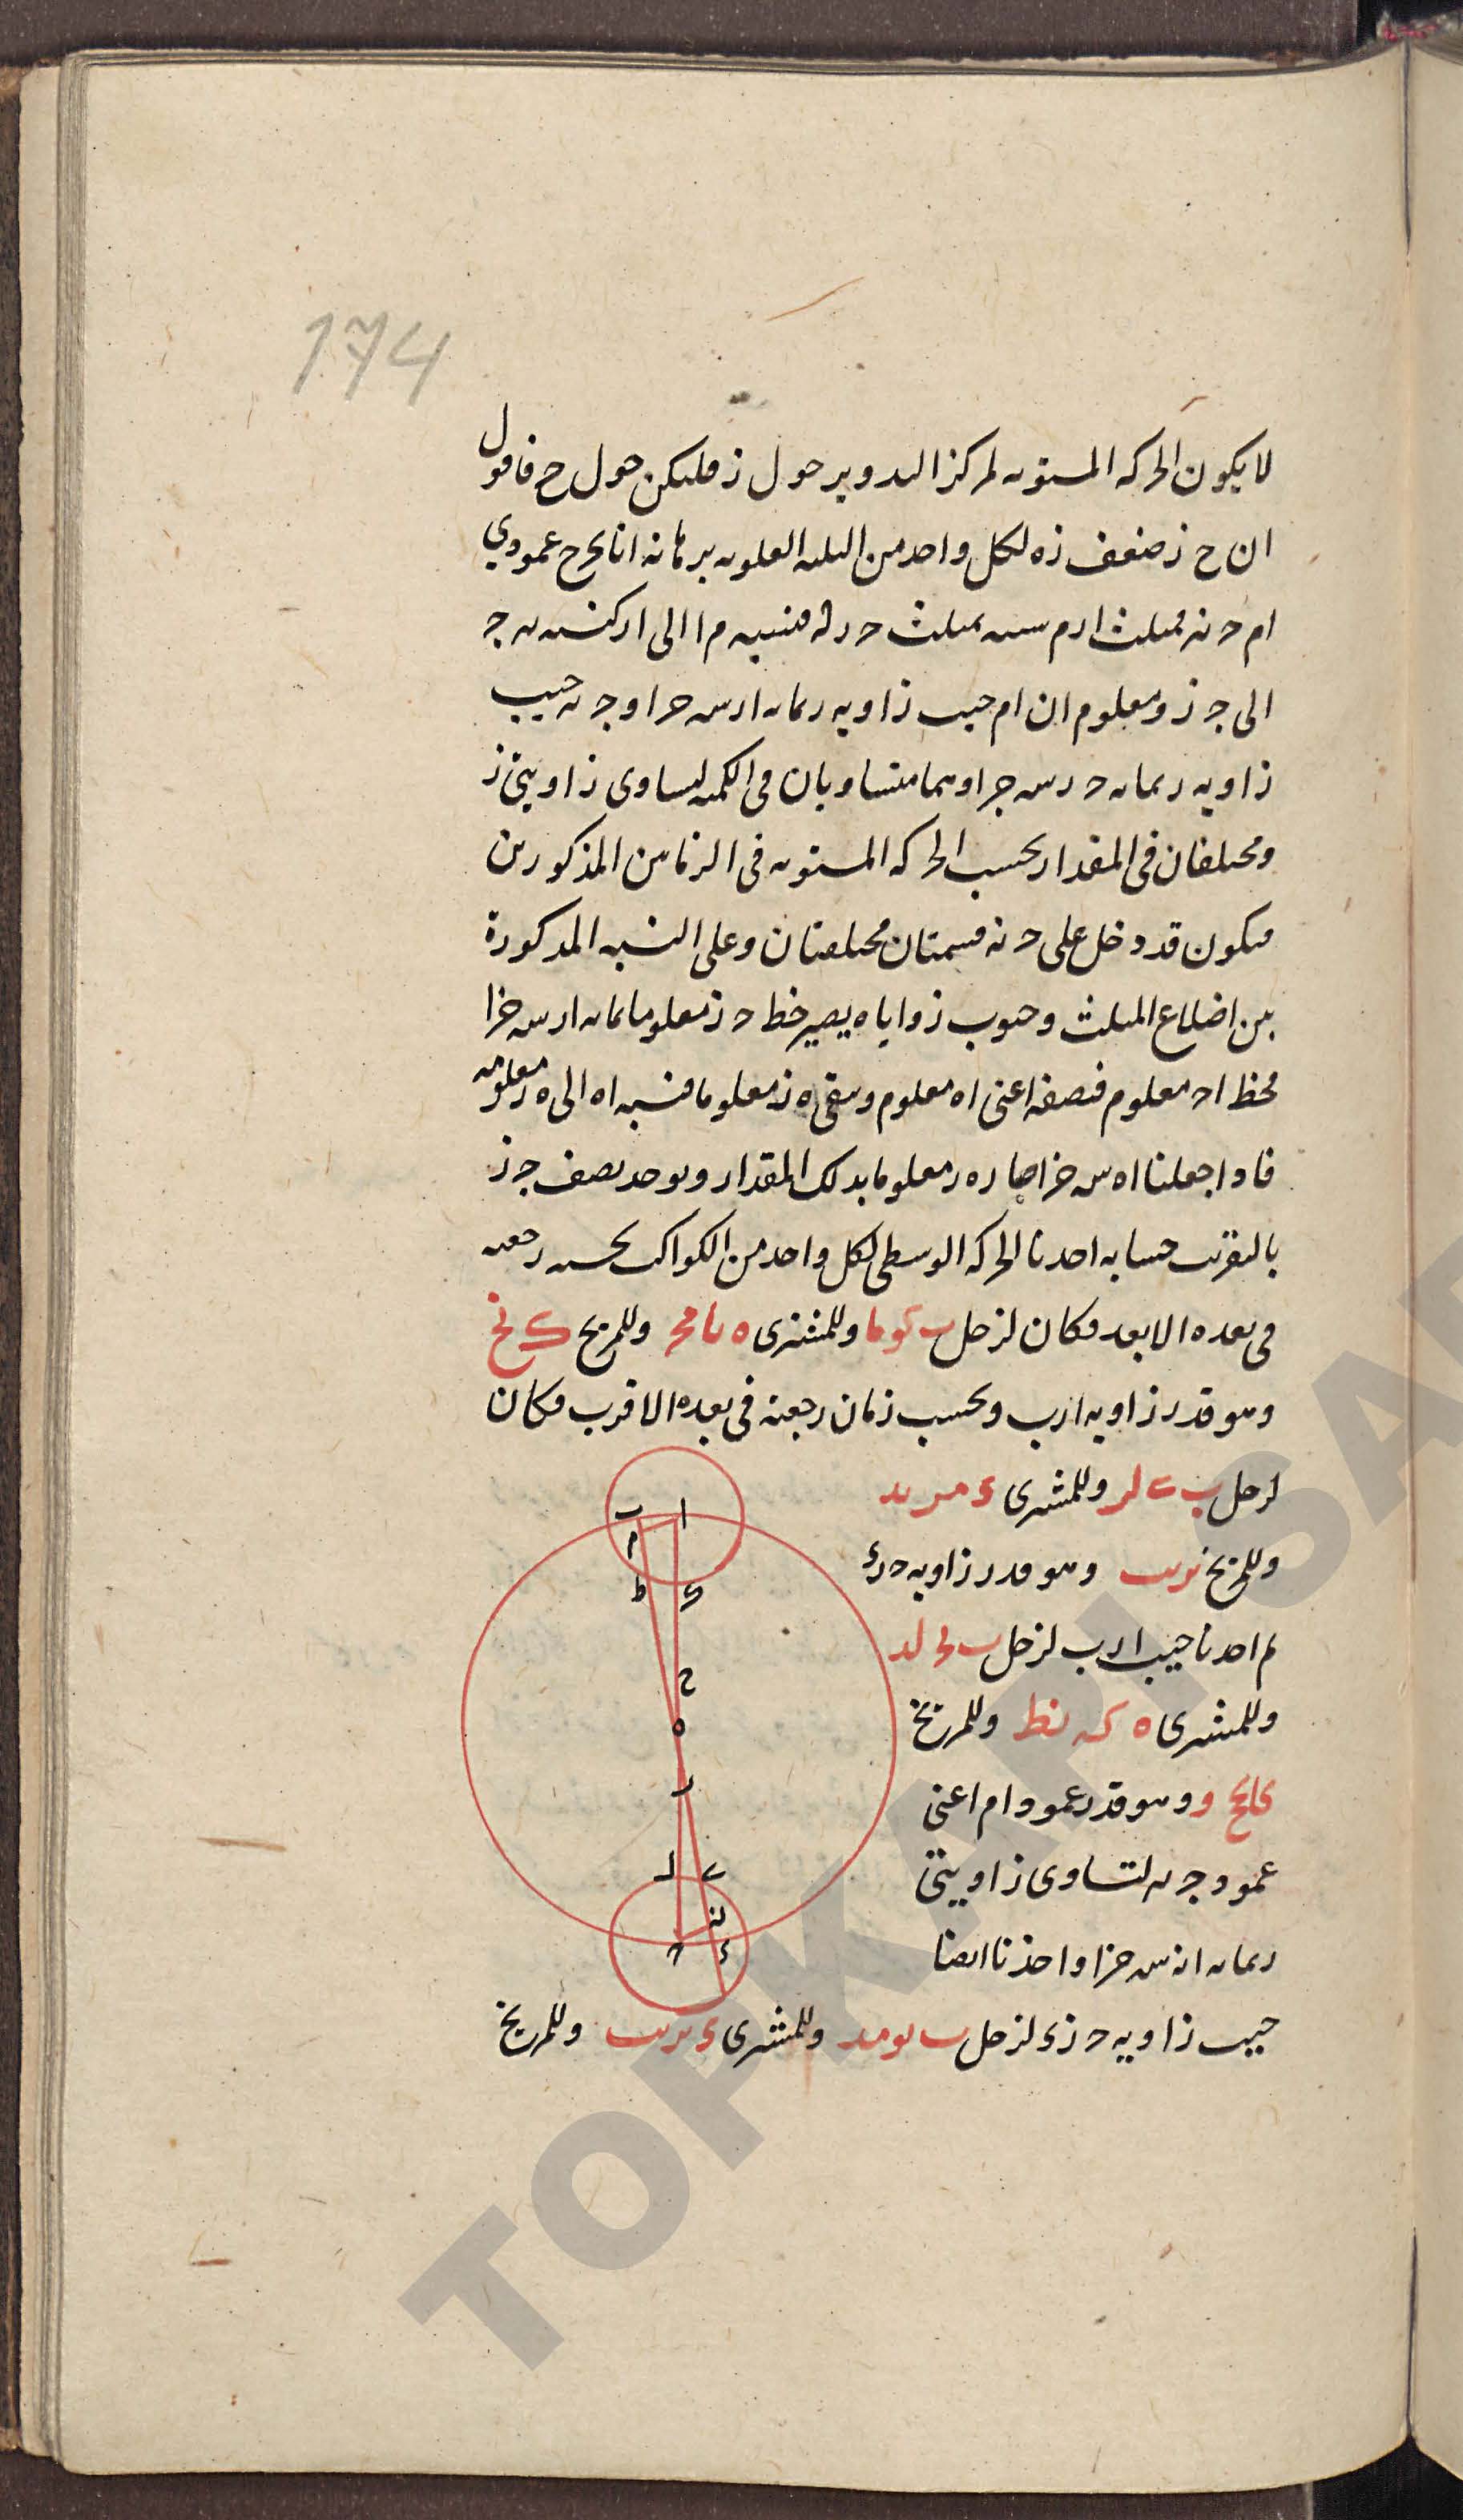 174
لا يكون الحركه المستويه لمركز التدوير حول ز فليكن حول ح فاقول
ان ح ز ضعف ز ه لكل واحد من الثلثه العلويه برهانه انا نخرج عمودي
ام حـ نـ فمثلث ا ر م شبيه بمثلث حـ ر نـ فنسبه م ا الى ا ر كنسبه نـ جـ
الى جـ ز ومعلوم ان ام جيب زاويه ر بمابه ار س جزا وجـ نـ جيب
زاويه ر بمابه حـ ر س جزا وهما متساويان فى الكميه لتساوى زاويتي ز
ومختلفان فى المقدار بحسب الحركه المستويه فى الزمانين المذكورين
فيكون قد دخل على حـ نـ قسمتان مختلفتان وعلى النسبه المذكورة
بين اضلاع المثلث وجيوب زواياه يصير خط حـ ز معلوما بمابه ار س جزا
فخط احـ معلوم فنصفه اعنى اه معلوم وبقى ه ز معلوما فنسبه اه الى ه ز معلومه
فاذا جعلنا اه س جزا صار ه ر معلوما بذلك المقدار ويوجد نصف جـ ز
بالتقريب حسابه اخذنا الحركه الوسطى لكل واحد من الكواكب بحسب رجعته
فى بعده الابعد فكان لزحل وللمشترى وللمريخ
وهو قدر زاويه ارب وبحسب زمان رجعته فى بعده الاقرب فكان
لزحل وللمشترى
وللمريخ وهو قدر زاويه حـ رء
ثم اخذنا جيب ارب لزحل
وللمشترى ه كه نط وللمريخ
وهو قدر عمود ام اعنى
عمود جـ نـ لتساوى زاويتي
ر بمابه ار س جزا واخذنا ايضا
جيب زاويه حـ زء لزحل وللمشترى وللمريخ
ا
ب
م
ط
ح
ه
ر
ل
ء
TOPKAPI SA